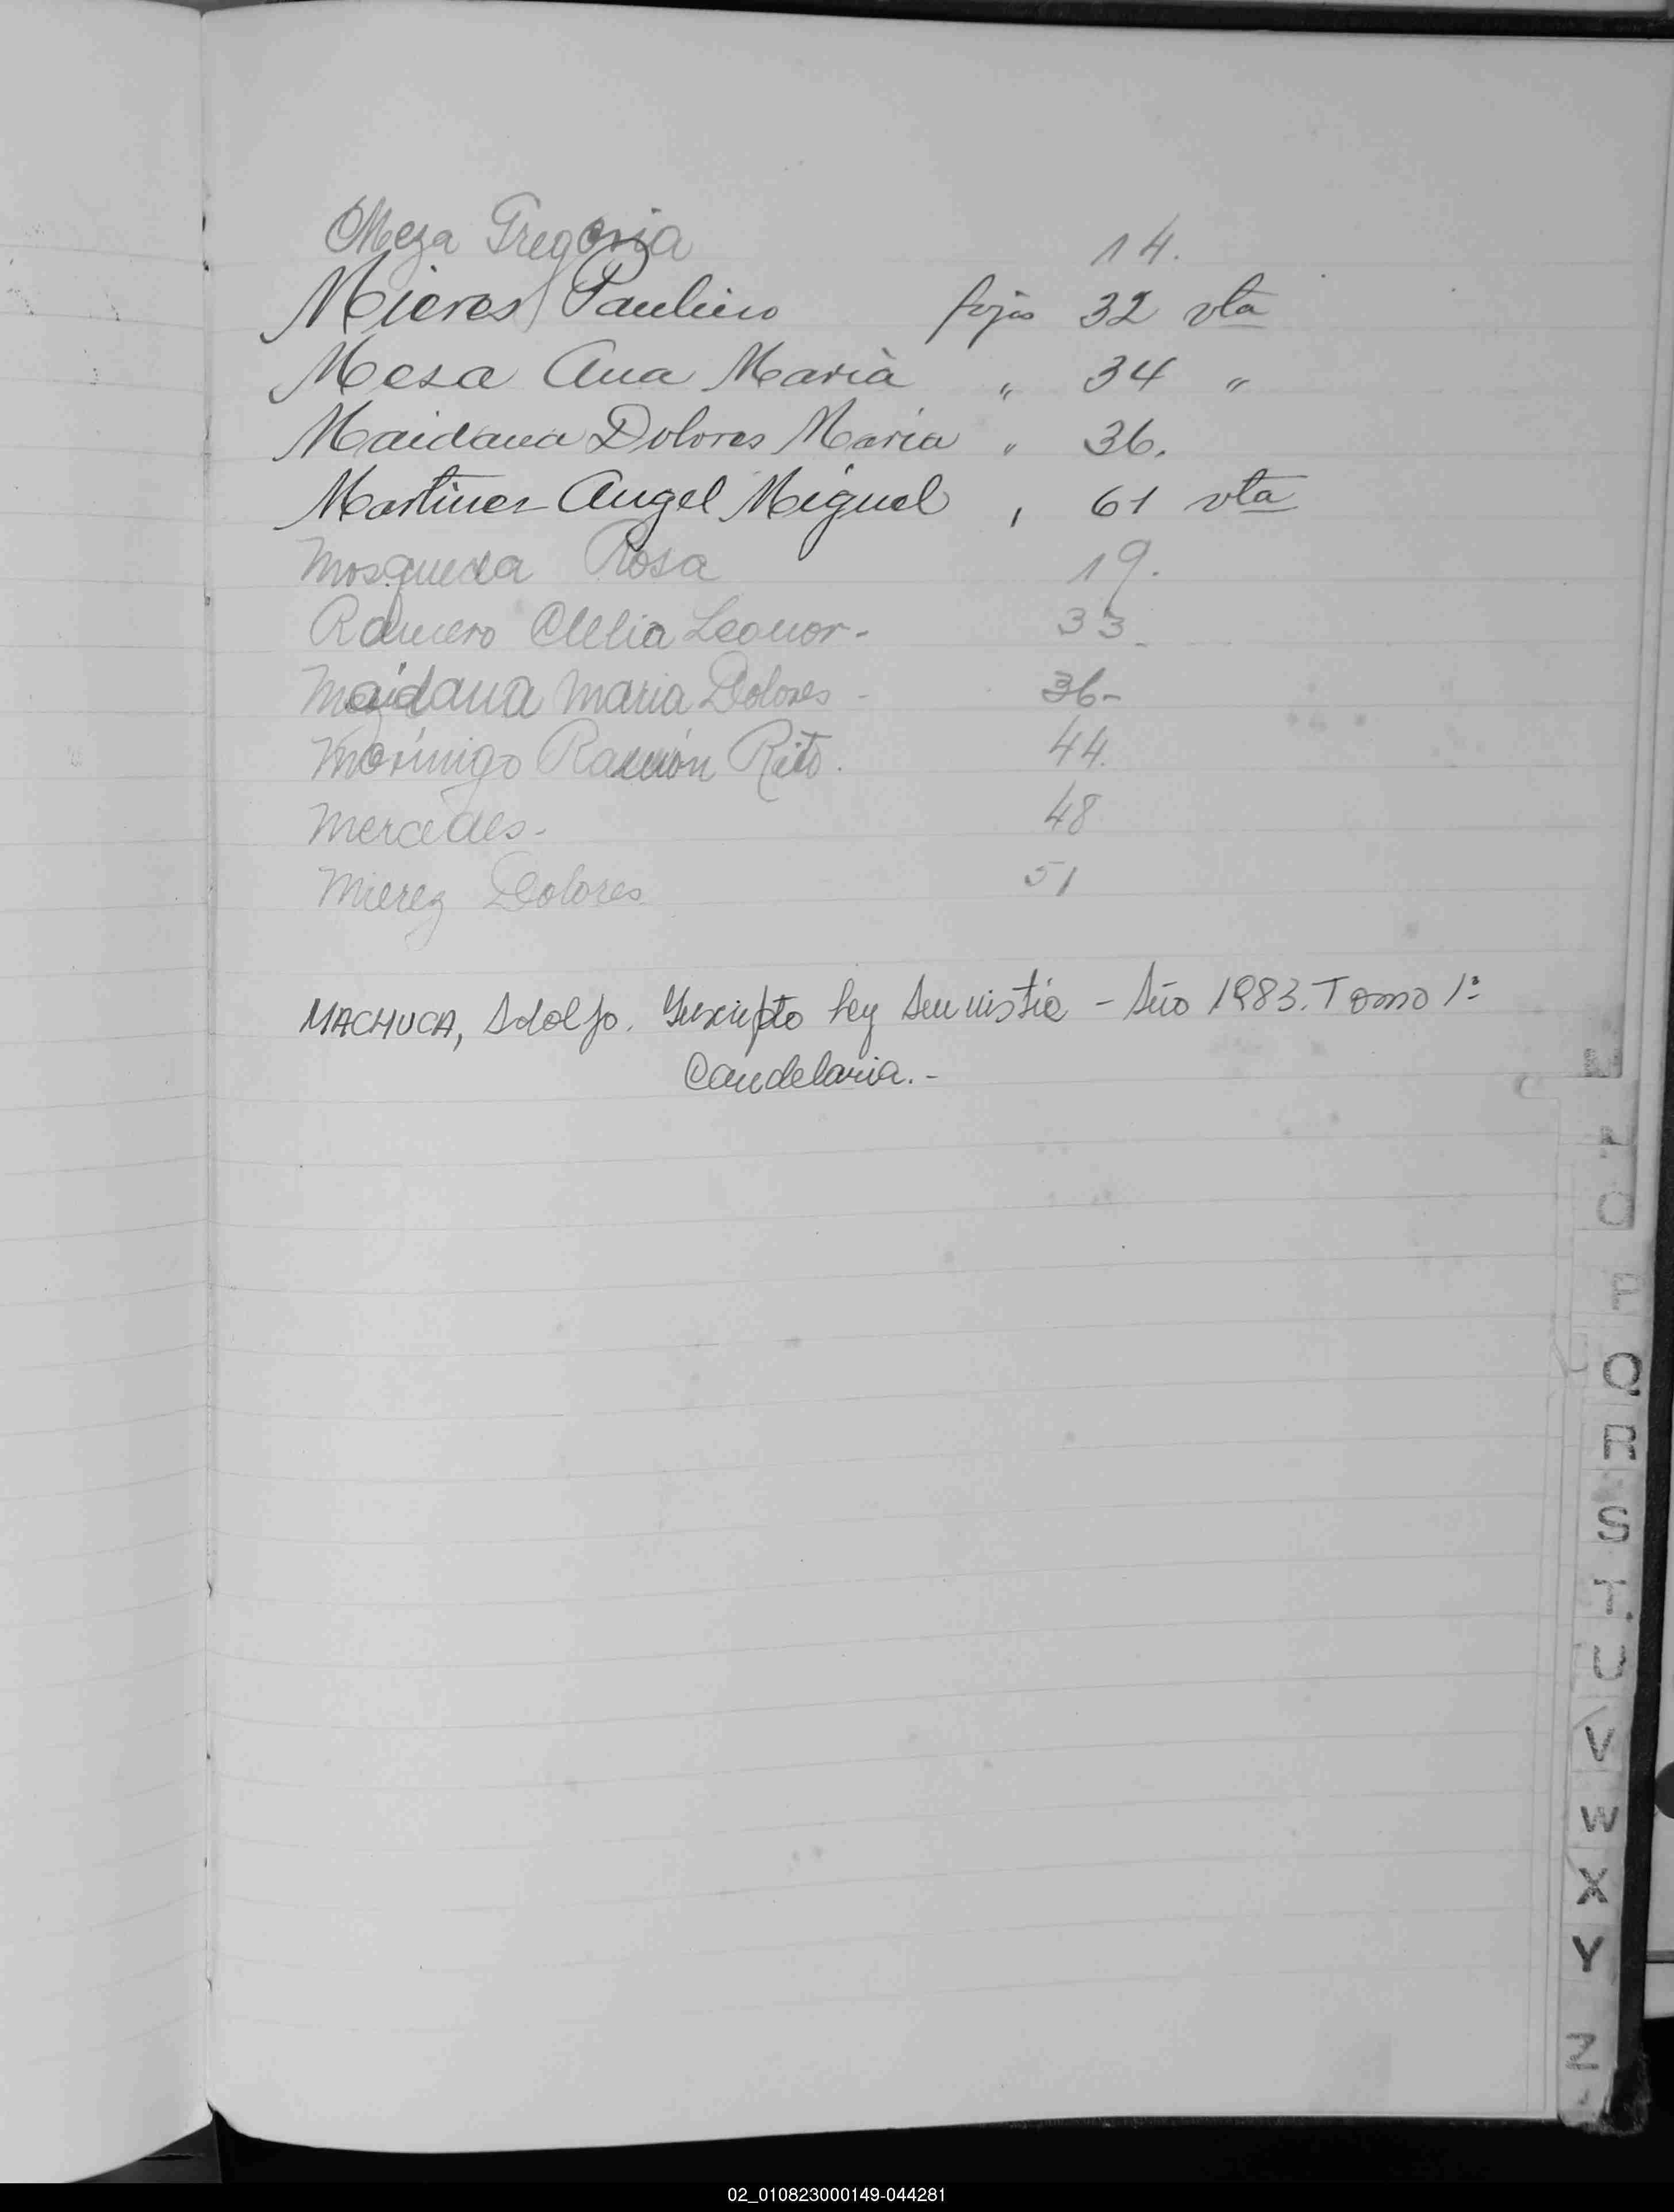 Meza Gregoria 14.
Mieres Paulino fojas 32 vta
Mesa Ana Maria " 34 "
Maidana Dolores Maria " 36.
Martinez Angel Miguel , 61 vta
Mosqueda Rosa 19.
Romero Clelia Leonor - 33 -
Maidana Maria Dolores - 36-
Morinigo Ramón Rito. 44.
Mercedes - 48
Mierez Dolores 51
MACHUCA, Adolfo. Inscripto Ley Amnistia - Año 1983. Tomo 1º
Candelaria.-
O
Q
R
S
T
U
V
W
X
Y
Z
02_010823000149-044281